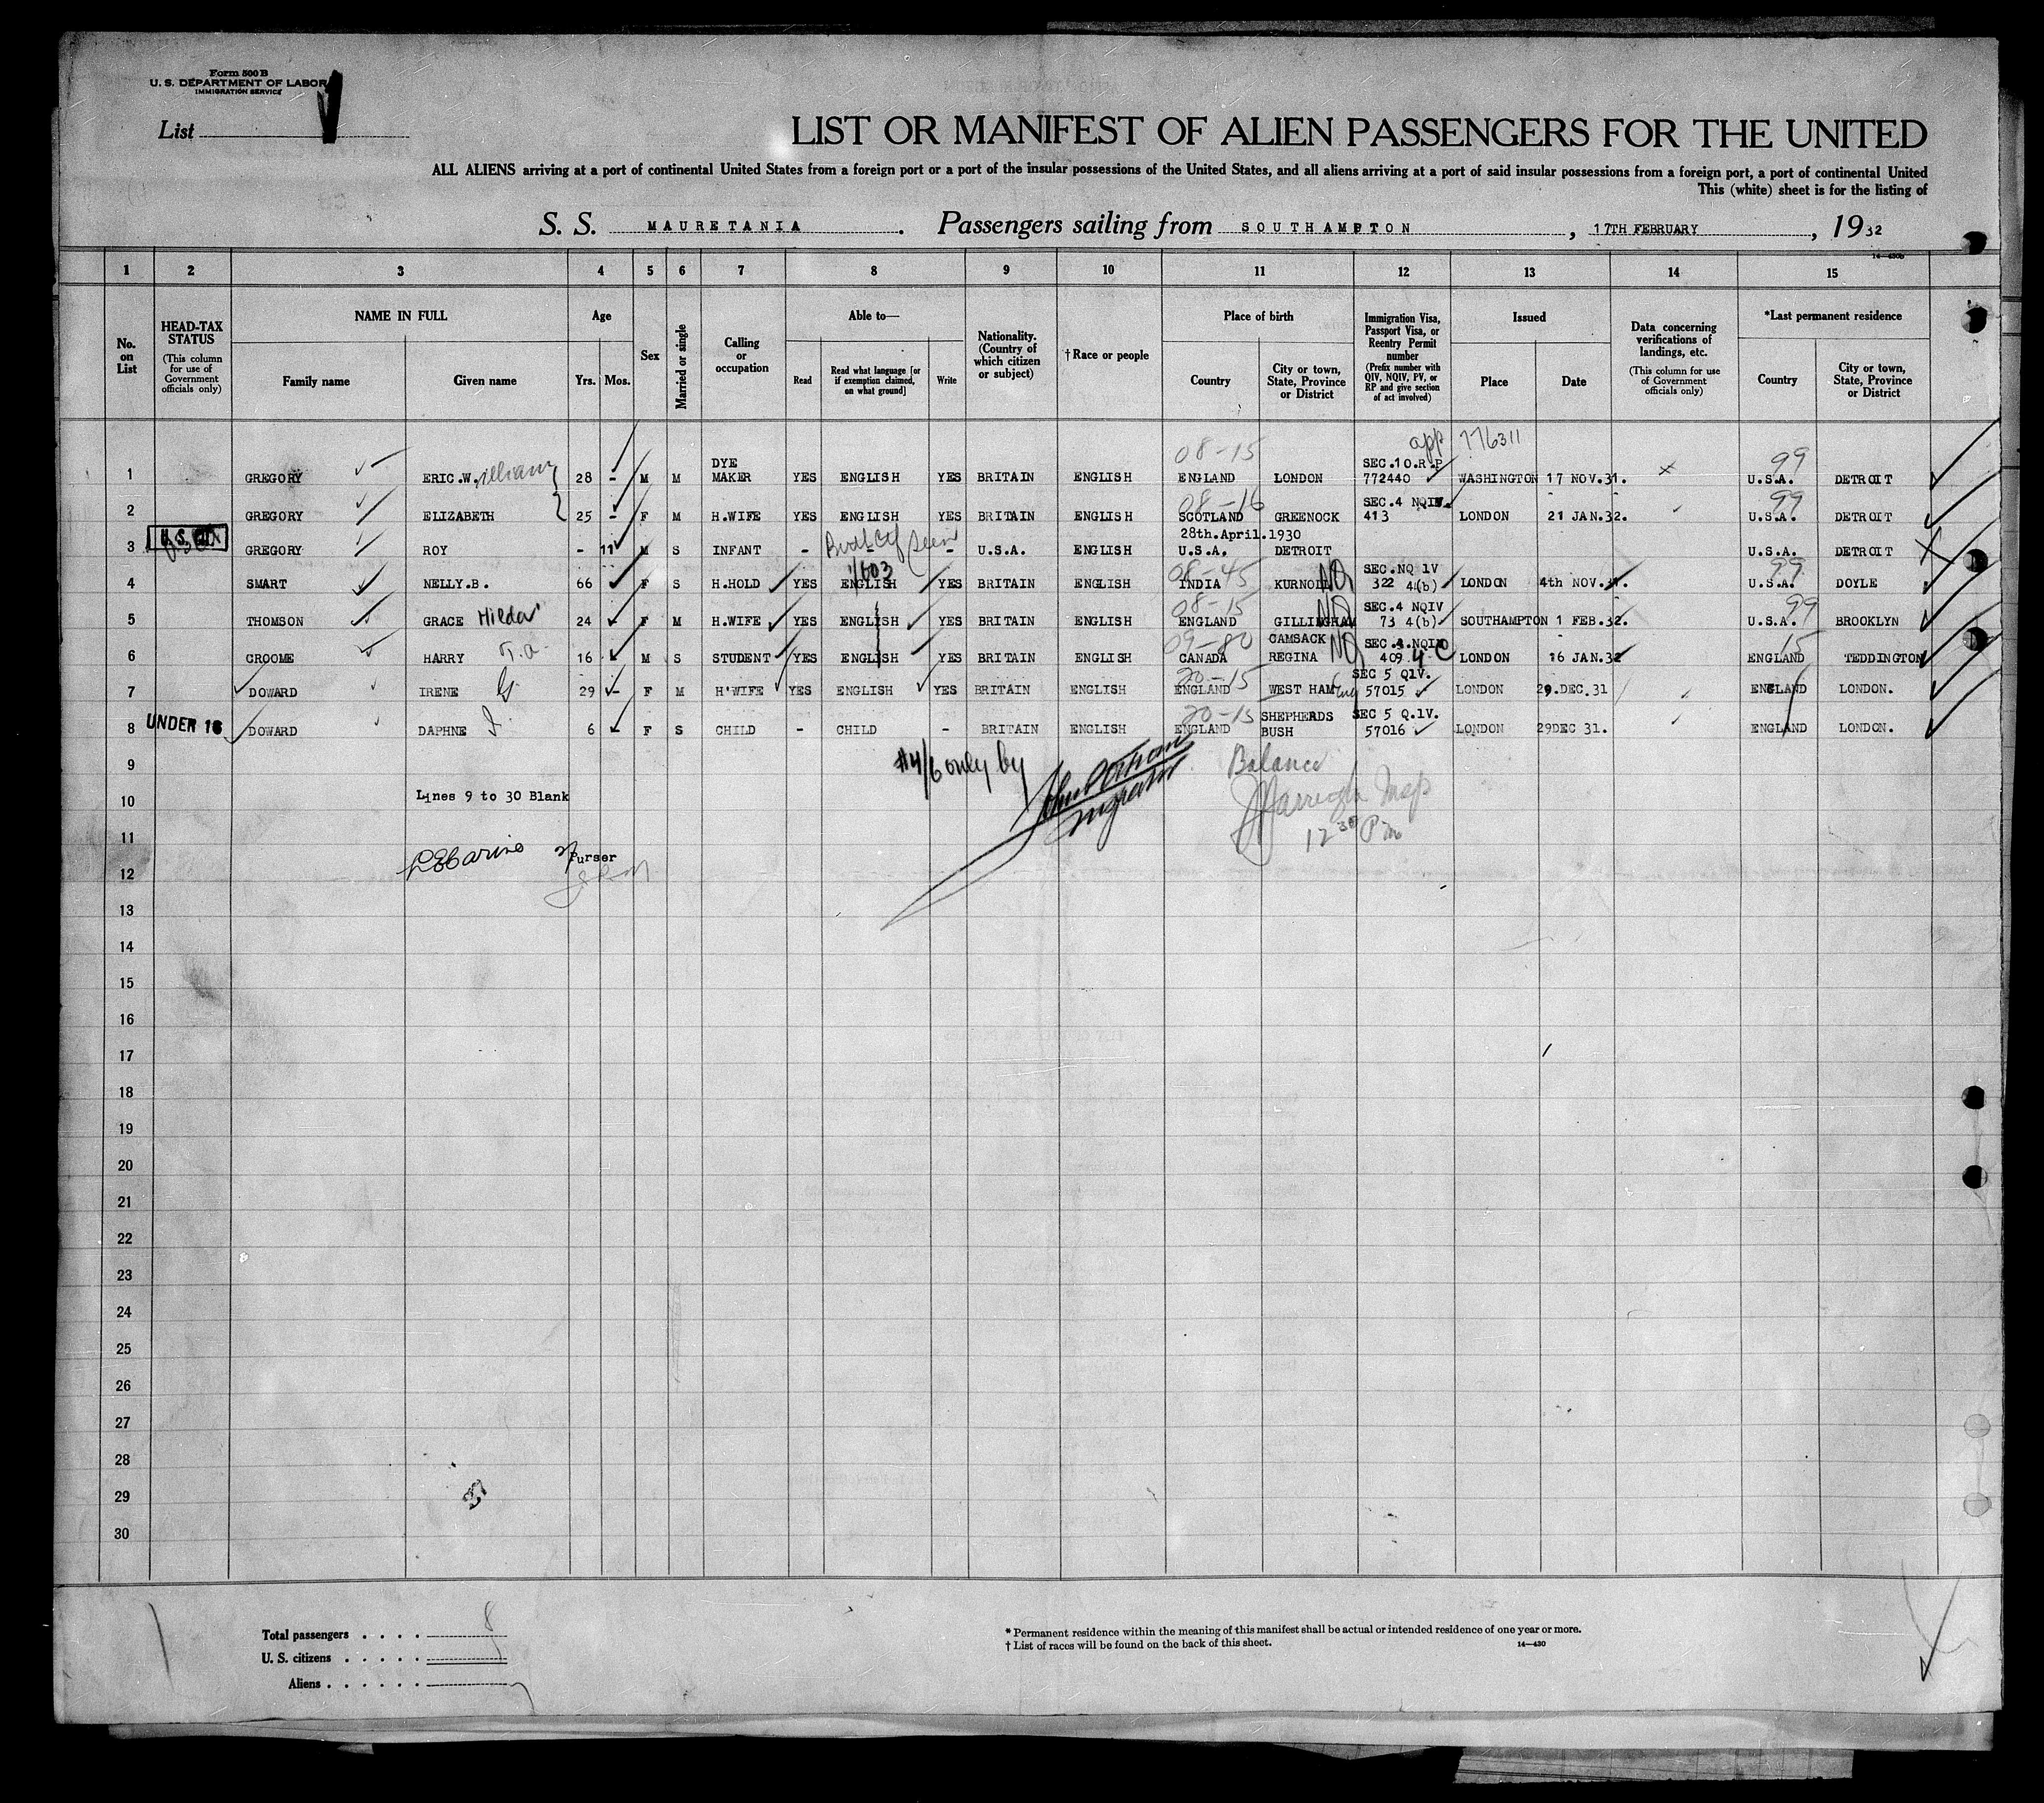 Form 500 B
U. S. DEPARTMENT OF LABOR
IMMIGRATION SERVICE
List
LIST OR MANIFEST OF ALIEN PASSENGERS FOR THE UNITED
ALL ALIENS arriving at a port of continental United States from a foreign port or a port of the insular possessions of the United States, and all aliens arriving at a port of said insular possessions from a foreign port, a port of continental United
This (white) sheet is for the listing of
S. S. MAURETANIA. Passengers sailing from SOUTHAMPTON, 17TH FEBRUARY, 1932
14—430b
1 2 3 4 5 6 7 8 9 10 11 12 13 14 15
No. on List
HEAD-TAX STATUS (This column for use of Government officials only)
NAME IN FULL
Family name Given name
Age
Yrs. Mos.
Sex
Married or single
Calling or occupation
Able to—
Read Read what language [or if exemption claimed, on what ground] Write
Nationality. (Country of which citizen or subject)
†Race or people
Place of birth
Country City or town, State, Province or District
Immigration Visa, Passport Visa, or Reentry Permit number (Prefix number with QIV, NQIV, PV, or RP and give section of act involved)
Issued
Place Date
Data concerning verifications of landings, etc. (This column for use of Government officials only)
*Last permanent residence
Country City or town, State, Province or District
app 776311
DYE 08-15 SEC.10.R.P 99
1 GREGORY ERIC.W.illiam 28 - M M MAKER YES ENGLISH YES BRITAIN ENGLISH ENGLAND LONDON 772440 WASHINGTON 17 NOV.31. U.S.A. DETROIT
08-16 SEC.4 NQIV 99
2 GREGORY ELIZABETH 25 - F M H.WIFE YES ENGLISH YES BRITAIN ENGLISH SCOTLAND GREENOCK 413 LONDON 21 JAN.32. U.S.A. DETROIT
28th.April.1930
3 GREGORY ROY - 11 M S INFANT - - - U.S.A. ENGLISH U.S.A. DETROIT U.S.A. DETROIT
1/603 08-45 SEC.NQ 1V 99
4 SMART NELLY.B. 66 F S H.HOLD YES ENGLISH YES BRITAIN ENGLISH INDIA KURNOIL NQ 322 4(b) LONDON 4th NOV.31. U.S.A. DOYLE
08-15 SEC.4 NQIV 99
5 THOMSON GRACE Hilda 24 F M H.WIFE YES ENGLISH YES BRITAIN ENGLISH ENGLAND GILLINGHAM NQ 73 4(b) SOUTHAMPTON 1 FEB.32. U.S.A. BROOKLYN
09-80 CAMSACK SEC.4.NQIV 15
6 CROOME HARRY T.A. 16 M S STUDENT YES ENGLISH YES BRITAIN ENGLISH CANADA REGINA NQ 409 4 C LONDON 16 JAN.32 ENGLAND TEDDINGTON
20-15 SEC 5 Q1V.
7 DOWARD IRENE G. 29 - F M H'WIFE YES ENGLISH YES BRITAIN ENGLISH ENGLAND WEST HAM Eng 57015 LONDON 29.DEC.31 ENGLAND LONDON.
20-15 SHEPHERDS SEC 5 Q.1V.
8 UNDER 16 DOWARD DAPHNE I. 6 F S CHILD - CHILD - BRITAIN ENGLISH ENGLAND BUSH 57016 LONDON 29DEC 31. ENGLAND LONDON.
9
#4/6 only by
Balance
10 Lines 9 to 30 Blank
Insp
12 30 Pm
11
Purser
12
13
14
15
16
17
18
19
20
21
22
23
24
25
26
27
28
29
30
Total passengers . . . . 8
U. S. citizens . . . . .
Aliens . . . . . .
* Permanent residence within the meaning of this manifest shall be actual or intended residence of one year or more.
† List of races will be found on the back of this sheet.
14—430